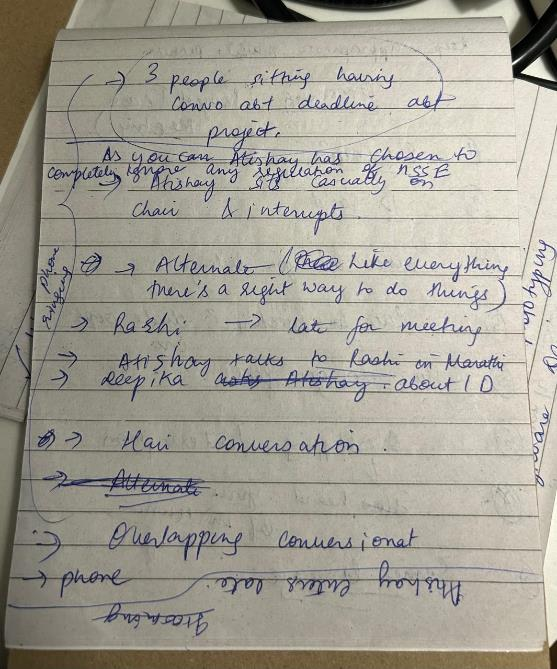 → 3 people sitting having
convo abt deadline abt
project.
As you can Atishay has chosen to
completely ignore any regulation of NSSE
→ Atishay sits casually on
chair & interrupts.
→ Alternate ( Like everything
there's a right way to do things)
→ Rashi → late for meeting
→ Atishay talks to Rashi in Marathi
→ deepika asks Atishay. about ID
→ Hair conversation.
→ Alternate
→ Overlapping conversionat
→ phone
Atishay enters late.
Grooming
phone
ringing
typing